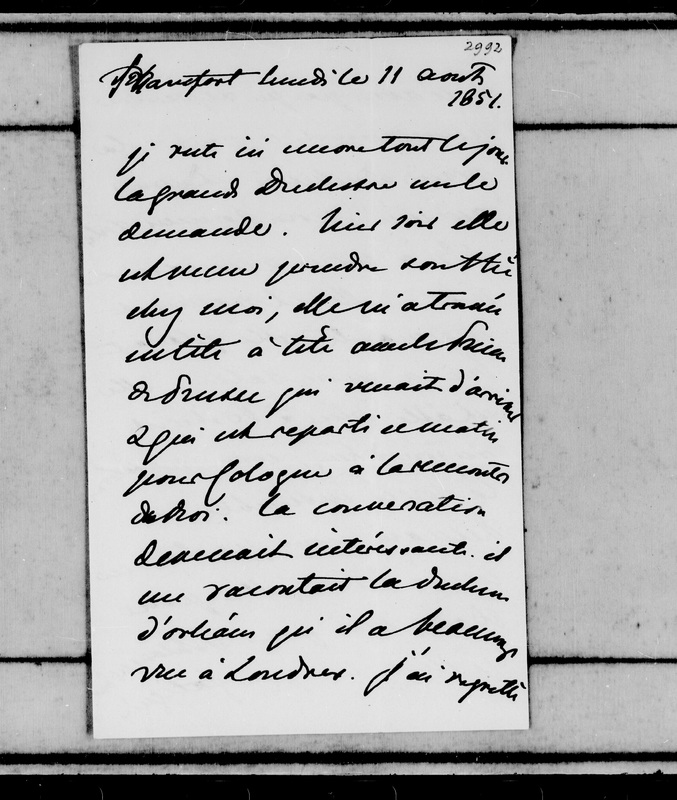 2992
Francfort lundi le 11 août
1851.
je reste ici encore tout le jour
la grande Duchesse me le
demande. hier soir elle
est venue prendre son thé
chez moi, elle m'a trouvée
en tête à tête avec le Prince
de Prusse qui venait d'arriver
& qui est reparti ce matin
pour Cologne à la rencontre
du Roi. la conversation
devenait intéressante. il
me racontait la duchesse
d'orléans qu'il a beaucoup
vue à Londres. j'ai regretté